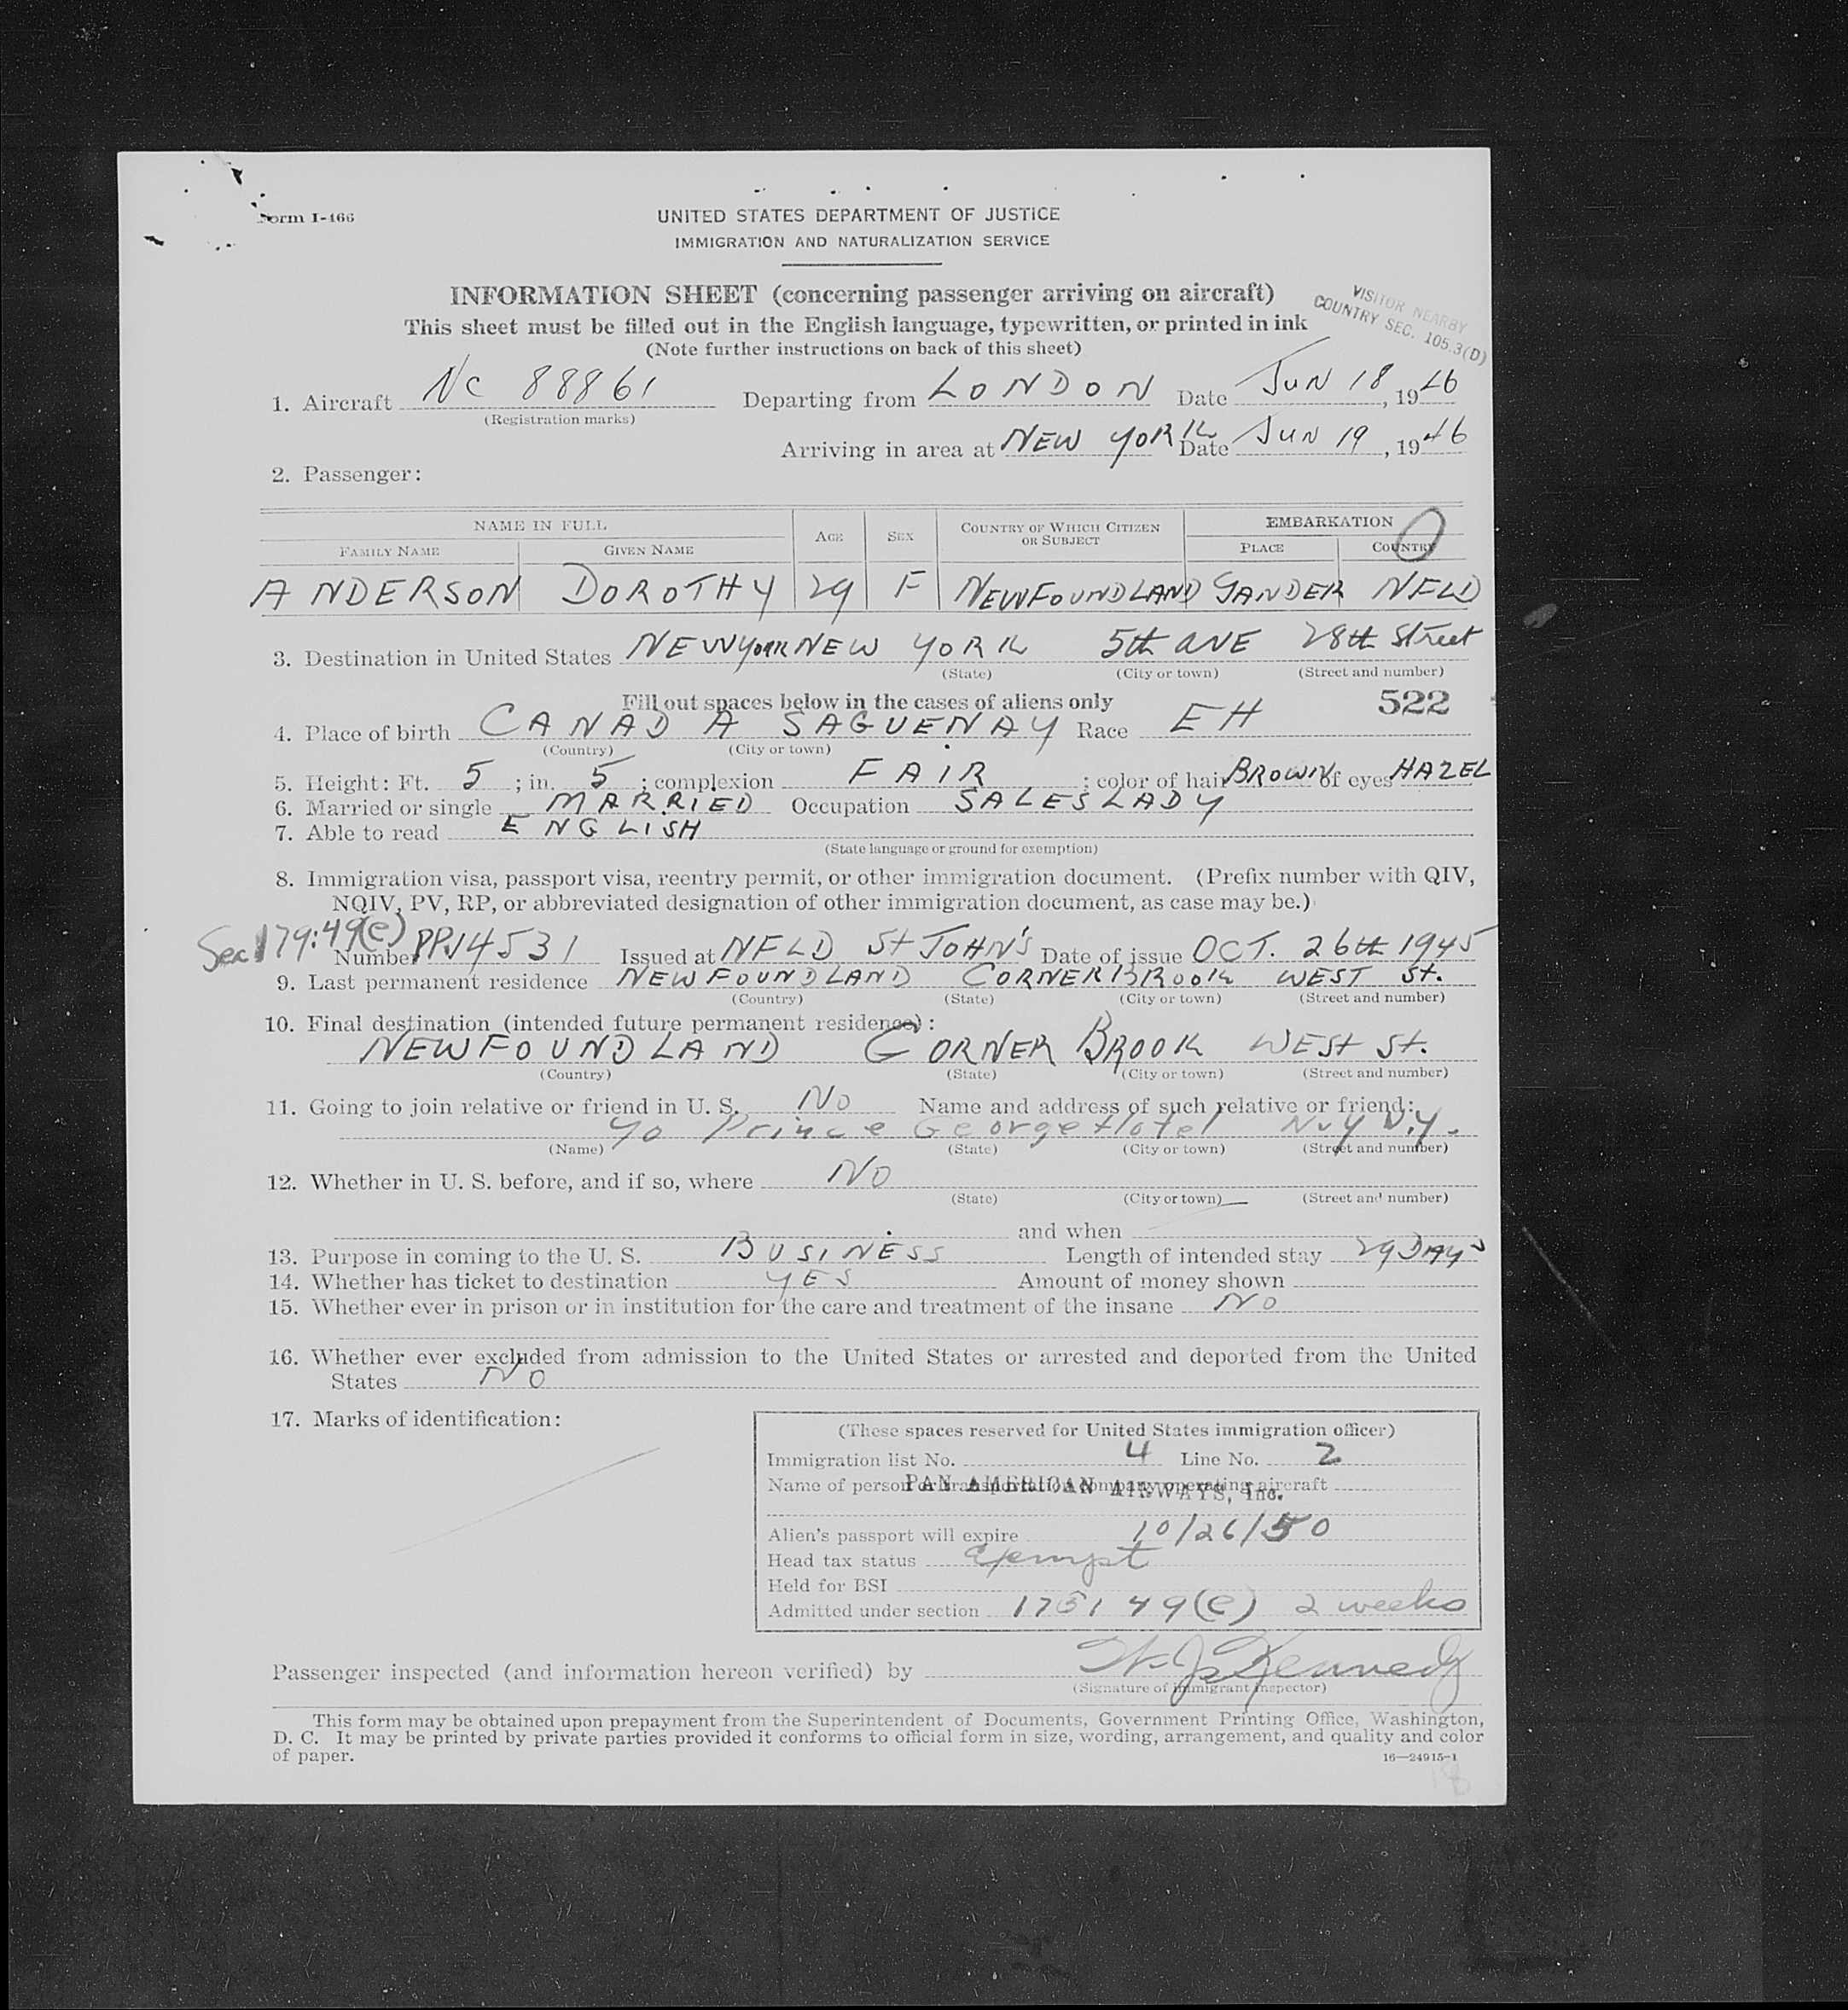 Form I-466
UNITED STATES DEPARTMENT OF JUSTICE
IMMIGRATION AND NATURALIZATION SERVICE
INFORMATION SHEET (concerning passenger arriving on aircraft)
VISITOR NEARBY
COUNTRY SEC. 105.3(D)
This sheet must be filled out in the English language, typewritten, or printed in ink
(Note further instructions on back of this sheet)
1. Aircraft NC 88861 Departing from LONDON Date JUN 18, 1946
(Registration marks)
Arriving in area at NEW YORK Date JUN 19, 1946
2. Passenger:
NAME IN FULL AGE SEX COUNTRY OF WHICH CITIZEN OR SUBJECT EMBARKATION
FAMILY NAME GIVEN NAME PLACE COUNTRY
ANDERSON DOROTHY 29 F NEWFOUNDLAND GANDER NFLD
3. Destination in United States NEW YORK NEW YORK 5th AVE 28th Street
(State) (City or town) (Street and number)
Fill out spaces below in the cases of aliens only 522
4. Place of birth CANADA SAGUENAY Race EH
(Country) (City or town)
5. Height: Ft. 5; in. 5; complexion FAIR; color of hair BROWN of eyes HAZEL
6. Married or single MARRIED Occupation SALESLADY
7. Able to read ENGLISH
(State language or ground for exemption)
8. Immigration visa, passport visa, reentry permit, or other immigration document. (Prefix number with QIV,
NQIV, PV, RP, or abbreviated designation of other immigration document, as case may be.)
Sec 179:49(e)
Number PP14531 Issued at NFLD St JOHN'S Date of issue OCT. 26th 1945
9. Last permanent residence NEWFOUNDLAND CORNERBROOK WEST St.
(Country) (State) (City or town) (Street and number)
10. Final destination (intended future permanent residence):
NEWFOUNDLAND CORNER BROOK WEST St.
(Country) (State) (City or town) (Street and number)
11. Going to join relative or friend in U. S. NO Name and address of such relative or friend:
Prince George Hotel N.Y N.Y.
(Name) (State) (City or town) (Street and number)
12. Whether in U. S. before, and if so, where NO
(State) (City or town) (Street and number)
and when
13. Purpose in coming to the U. S. BUSINESS Length of intended stay 29 DAYS
14. Whether has ticket to destination YES Amount of money shown
15. Whether ever in prison or in institution for the care and treatment of the insane NO
16. Whether ever excluded from admission to the United States or arrested and deported from the United
States NO
17. Marks of identification:
(These spaces reserved for United States immigration officer)
Immigration list No. 4 Line No. 2
Name of person or transportation company operating aircraft
PAN AMERICAN AIRWAYS, Inc.
Alien's passport will expire 10/26/50
Head tax status Exempt
Held for BSI
Admitted under section 49(e) 2 weeks
Passenger inspected (and information hereon verified) by W. J. Kennedy
(Signature of immigrant inspector)
This form may be obtained upon prepayment from the Superintendent of Documents, Government Printing Office, Washington,
D. C. It may be printed by private parties provided it conforms to official form in size, wording, arrangement, and quality and color
of paper.
16—24915-1